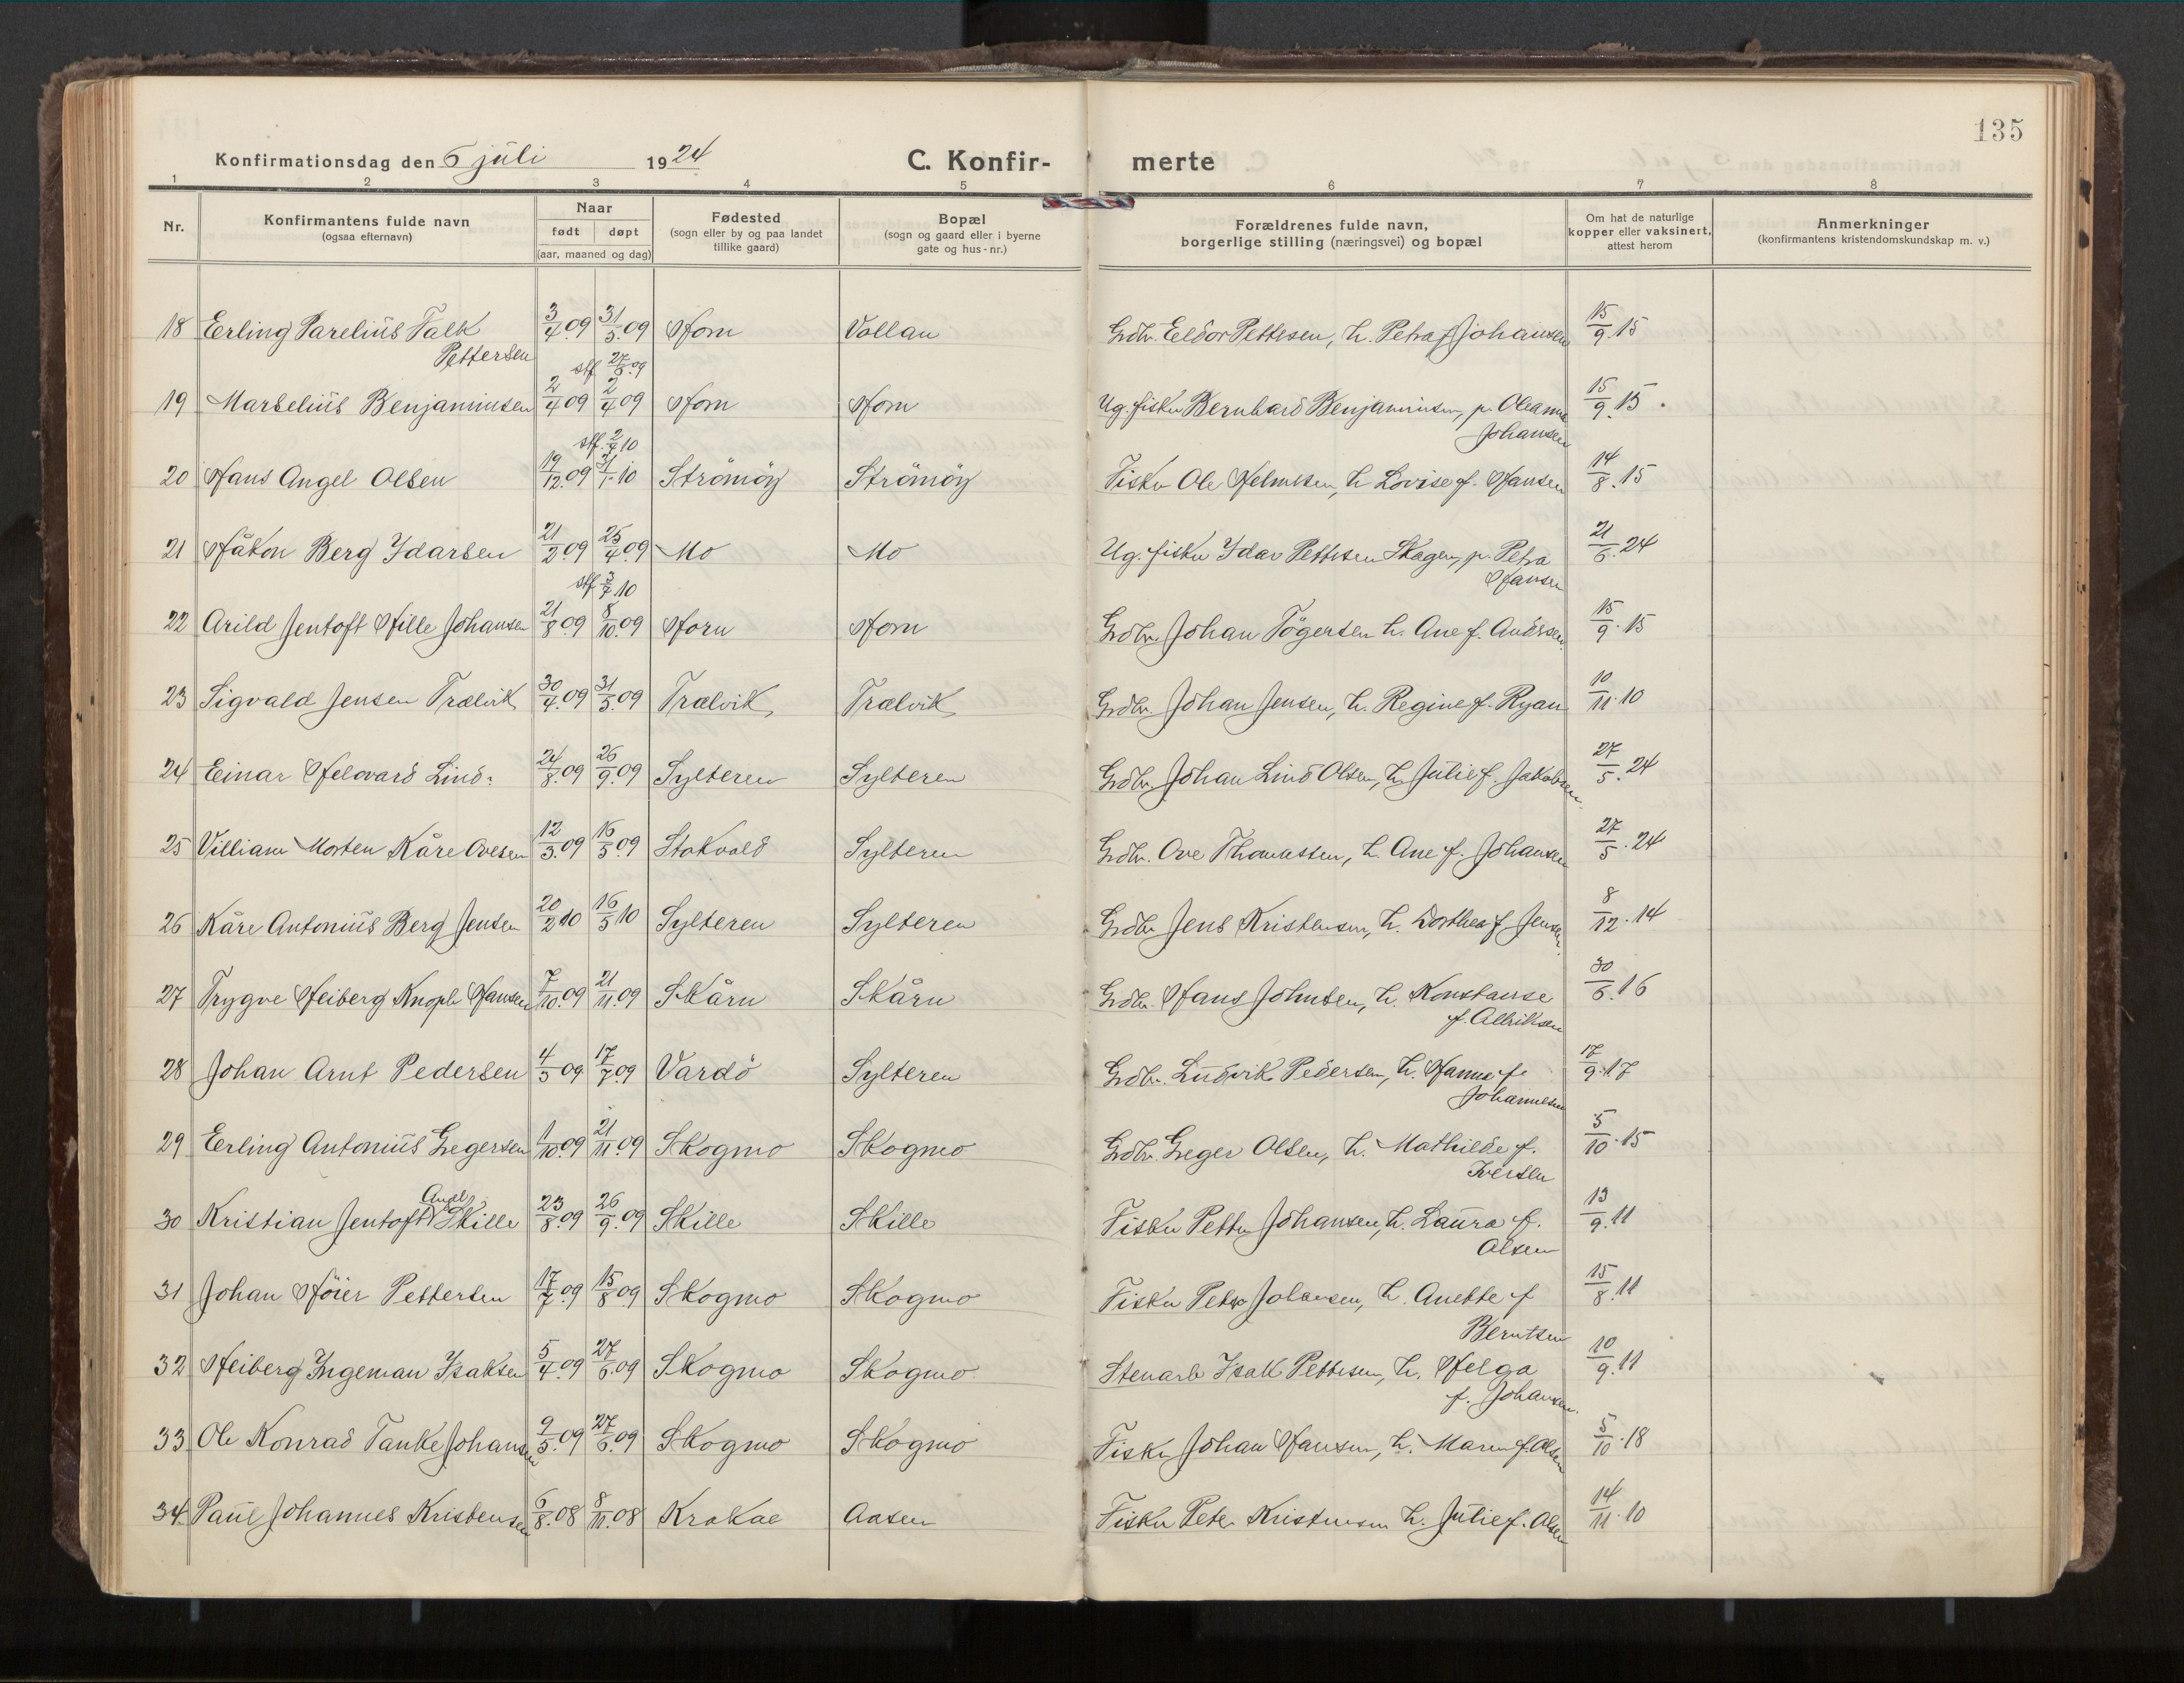 135
Konfirmationsdag den 6 juli 1924 C. Konfir- merte
1 2 3 4 5 6 7 8
Nr. Konfirmantens fulde navn (ogsaa efternavn) Naar født døpt (aar, maaned og dag) Fødested (sogn eller by og paa landet tillike gaard) Bopæl (sogn og gaard eller i byerne gate og hus-nr.) Forældrenes fulde navn, borgerlige stilling (næringsvei) og bopæl Om hat de naturlige kopper eller vaksinert, attest herom Anmerkninger (konfirmantens kristendomskundskap m. v.)
18 Erling Parelius Falk 3/4.09 31/5.09 Horn Vollan Grdbr. Eldor Pettersen, h. Petra f. Johansen 15/9.15
Pettersen stf 27/6.09
19 Marselius Benjaminsen 2/4.09 2/4.09 Horn Horn Ug. fisker Bernhard Benjaminsen, p. Oleanna 15/9.15
stf. 2/7.10 Johansen
20 Hans Angel Olsen 19/12.09 31/1.10 Strömöy Strömöy Fisker Ole Helmersen, h. Lovise f. Hansen 14/8.15
21 Håkon Berg Idarsen 21/2.09 25/4.09 Mo Mo Ug. fisker Idar Pettersen Skagen, p. Petra 21/6.24
stf 3/7.10 Hansen
22 Arild Jentoft Hille Johansen 21/8.09 8/10.09 Horn Horn Grdbr. Johan Tögersen h. Ane f. Andersen 15/9.15
23 Sigvald Jensen Trælvik 30/4.09 31/5.09 Trælvik Trælvik Grdbr. Johan Jensen, h. Regine f. Ryan 10/11.10
24 Einar Helovard Lind 24/8.09 26/9.09 Sylteren Sylteren Grdbr. Johan Lind Olsen, h. Julie f. Jakobsen 27/5.24
25 Villiam Morten Kåre Ovesen 12/3.09 16/5.09 Stokvold Sylteren Grdbr. Ove Thomassen, h. Ane f. Johansen 27/5.24
26 Kåre Antonius Berg Jensen 20/2.10 16/5.10 Sylteren Sylteren Grdbr. Jens Kristensen, h. Dorthea f. Jensen 8/12.14
27 Trygve Heiberg Knoph Hansen 7/10.09 21/11.09 Skårn Skårn Grdbr. Hans Johnsen, h. Konstanse 30/6.16
f. Albriksen
28 Johan Arnt Pedersen 4/5.09 17/7.09 Vardö Sylteren Grdbr. Ludvik Pedersen, h. Hanna f. 17/9.17
Johannesen
29 Erling Antonius Gregersen 1/10.09 21/11.09 Skogmo Skogmo Grdbr. Greger Olsen, h. Mathilde f. 5/10.15
Iversen
30 Kristian Jentoft Angel Skille 23/8.09 26/9.09 Skille Skille Fisker Petter Johansen, h. Laura f. 13/9.11
Olsen
31 Johan Höier Pettersen 17/7.09 15/8.09 Skogmo Skogmo Fisker Peter Johansen, h. Anette f 15/8.11
Berntsen
32 Heiberg Ingeman Isaksen 5/4.09 27/6.09 Skogmo Skogmo Stenarb Isak Pettersen, h. Helga 10/9.11
f. Johansen.
33 Ole Konrad Tanke Johansen 9/5.09 27/6.09 Skogmo Skogmo Fisker Johan Hansen, h. Maren f. Olsen 5/10.18
34 Paul Johannes Kristensen 6/8.08 8/11.08 Krakae Aasen Fisker Peter Kristensen h. Julie f. Olsen 14/11.10